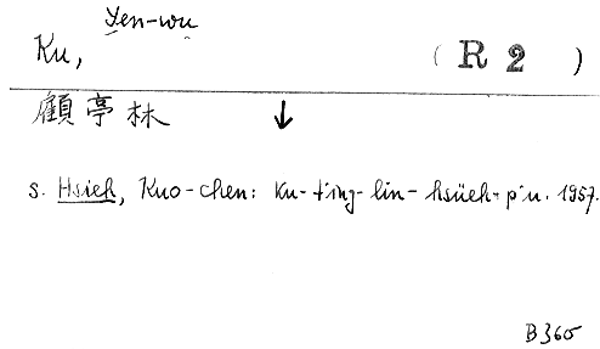 Ku, Yen-wu (R 2)
顧亭林 ↓
s. Hsieh, Kuo-chen: Ku-t'ing-lin-hsüeh-p'u. 1957.
B 360